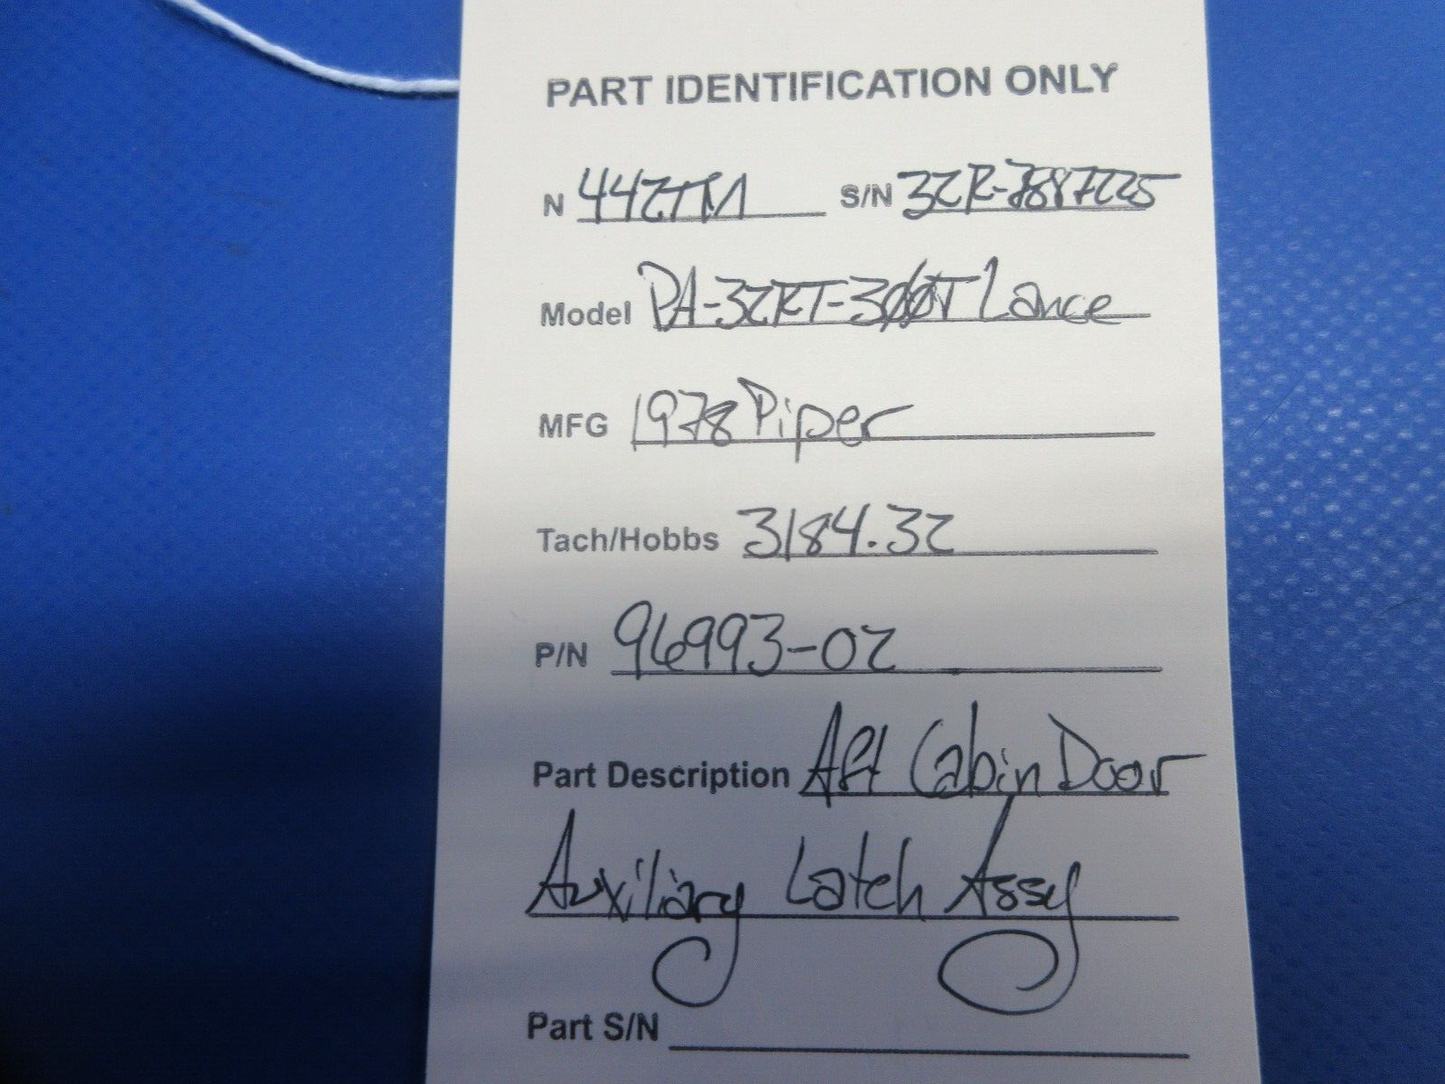 PART IDENTIFICATION ONLY
N 442TM S/N 32R-7887225
Model PA-32RT-300T Lance
MFG 1978 Piper
Tach/Hobbs 3184.32
P/N 96993-02
Part Description Aft Cabin Door
Auxiliary Latch Assy
Part S/N